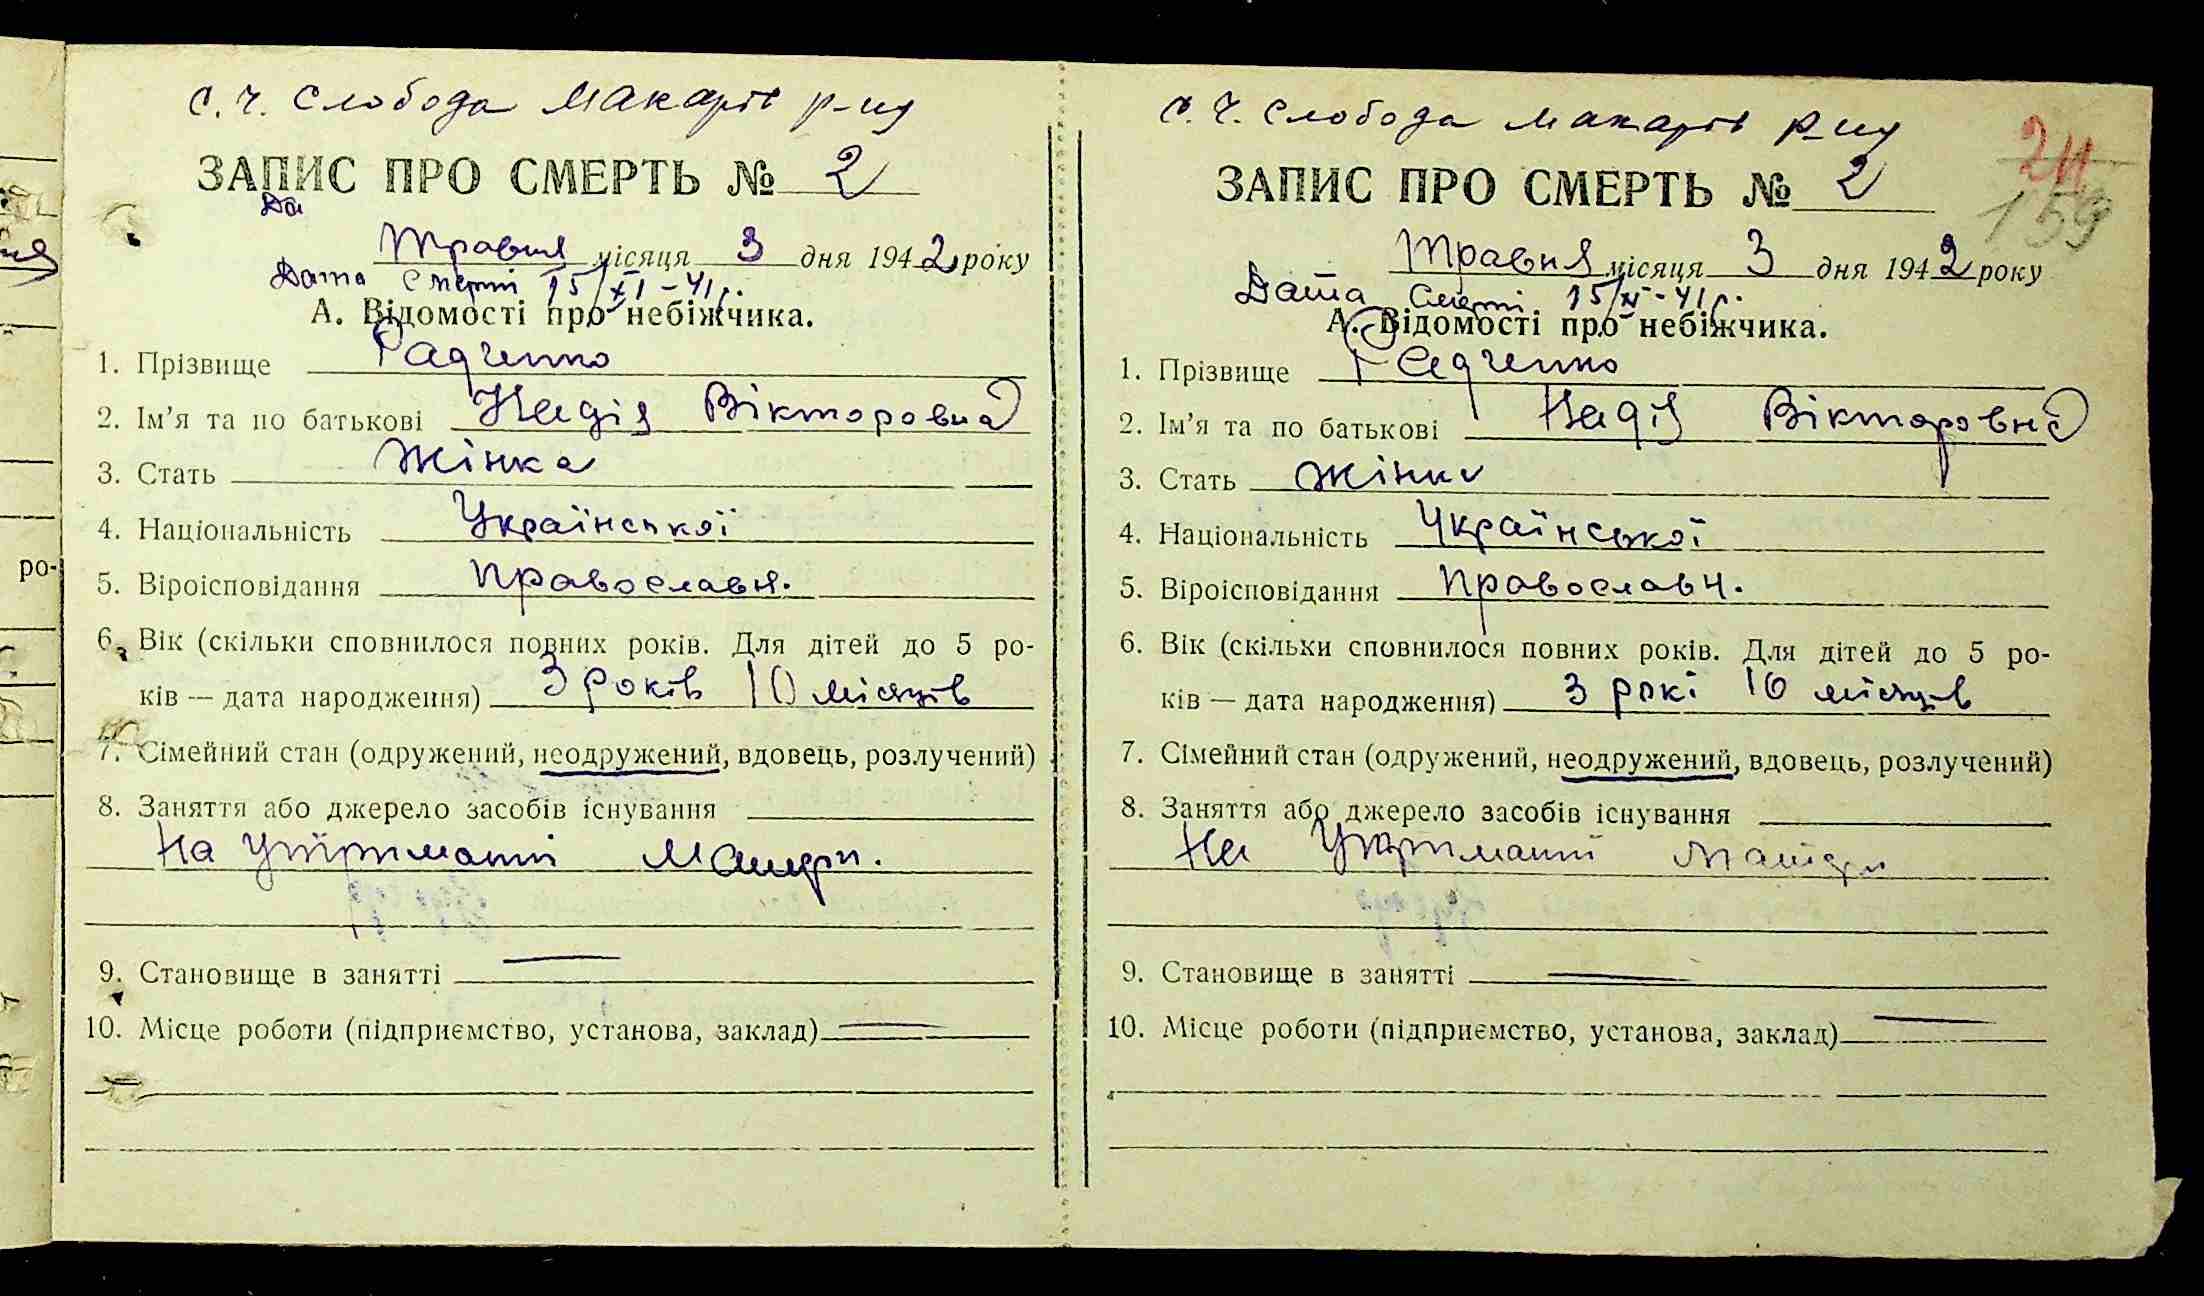 с. Ч. Слобода Макарів р-ну
ЗАПИС ПРО СМЕРТЬ № 2
Да
Травня місяця 3 дня 1942 року
Дата смерті 15/XI-41р.
А. Відомості про небіжчика.
1. Прізвище Радченко
2. Ім'я та по батькові Надія Вікторовна
3. Стать Жінка
4. Національність Української
5. Віроісповідання Православн.
6. Вік (скільки сповнилося повних років. Для дітей до 5 ро-
ків — дата народження) 3 років 10 місяців
7. Сімейний стан (одружений, неодружений, вдовець, розлучений)
8. Заняття або джерело засобів існування
На утриманні Матери.
9. Становище в занятті —
10. Місце роботи (підприємство, установа, заклад) —
с. Ч. Слобода Макарів р-ну
24
159
ЗАПИС ПРО СМЕРТЬ № 2
Травня місяця 3 дня 1942 року
Дата смерті 15/XI-41р.
А. Відомості про небіжчика.
1. Прізвище Радченко
2. Ім'я та по батькові Надія Вікторовна
3. Стать Жінка
4. Національність Української
5. Віроісповідання Православн.
6. Вік (скільки сповнилося повних років. Для дітей до 5 ро-
ків — дата народження) 3 рокі 10 місяців
7. Сімейний стан (одружений, неодружений, вдовець, розлучений)
8. Заняття або джерело засобів існування
На утриманні матери
9. Становище в занятті —
10. Місце роботи (підприємство, установа, заклад) —
ро-